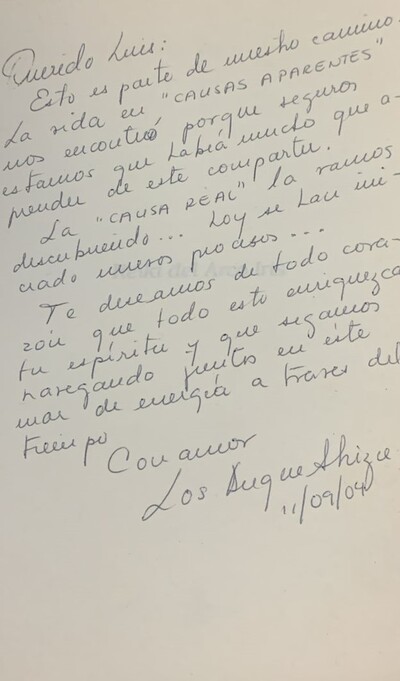 Querido Luis:
Esto es parte de nuestro camino.
La vida en "CAUSAS APARENTES"
nos encontró porque seguros
estamos que habiá mucho que a-
prender de este compartir.
La "CAUSA REAL" la vamos
descubriendo... hoy se han ini-
ciado nuevos procesos...
Te deseamos de todo cora-
zón que todo esto enriquezca
tu espíritu y que sigamos
navegando juntos en éste
mar de energía a traves del
tiempo
Con amor
Los Duque
11/09/04